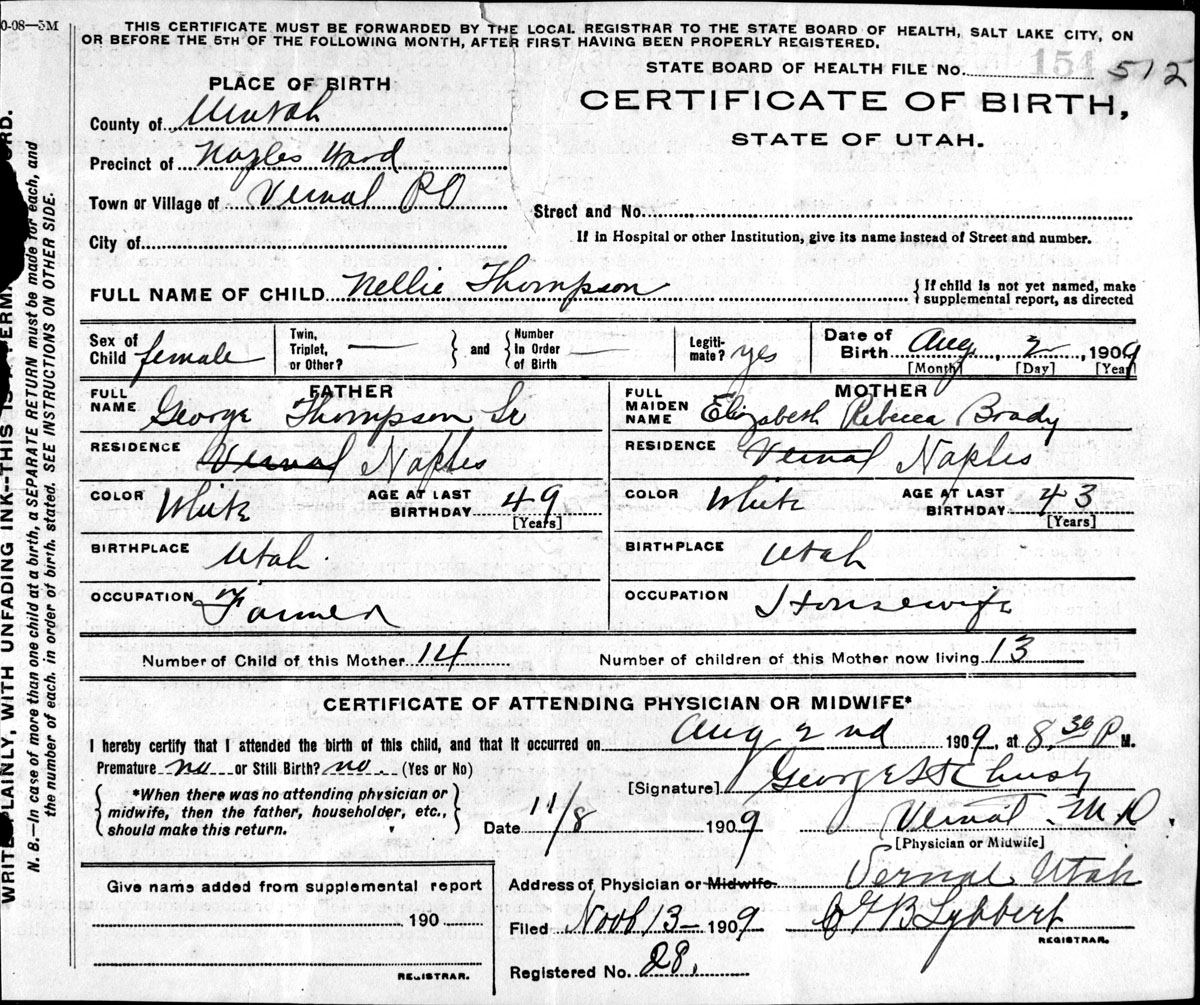 0-08—5M
THIS CERTIFICATE MUST BE FORWARDED BY THE LOCAL REGISTRAR TO THE STATE BOARD OF HEALTH, SALT LAKE CITY, ON
OR BEFORE THE 5TH OF THE FOLLOWING MONTH, AFTER FIRST HAVING BEEN PROPERLY REGISTERED.
STATE BOARD OF HEALTH FILE NO. 154 512
PLACE OF BIRTH
CERTIFICATE OF BIRTH,
STATE OF UTAH.
County of Uintah
Precinct of Naples Ward
Town or Village of Vernal PO
Street and No.
City of
If in Hospital or other Institution, give its name instead of Street and number.
FULL NAME OF CHILD Nellie Thompson { If child is not yet named, make supplemental report, as directed
Sex of Child female
Twin, Triplet, or Other? — } and { Number In Order of Birth —
Legiti-mate? yes
Date of Birth Aug, 2, 1909
[Month] [Day] [Year]
FATHER
FULL NAME George Thompson Sr
MOTHER
FULL MAIDEN NAME Elizabeth Rebecca Brady
RESIDENCE Vernal Naples
RESIDENCE Vernal Naples
COLOR White AGE AT LAST BIRTHDAY 49 [Years]
COLOR White AGE AT LAST BIRTHDAY 43 [Years]
BIRTHPLACE Utah
BIRTHPLACE Utah
OCCUPATION Farmer
OCCUPATION Housewife
Number of Child of this Mother 14 Number of children of this Mother now living 13
CERTIFICATE OF ATTENDING PHYSICIAN OR MIDWIFE*
I hereby certify that I attended the birth of this child, and that it occurred on Aug 2nd 1909, at 8.30 P M.
Premature no or Still Birth? no (Yes or No)
[Signature] George
{ *When there was no attending physician or midwife, then the father, householder, etc., should make this return. }
Date 11/8 1909 Vernal M.D.
[Physician or Midwife]
Give name added from supplemental report
190
REGISTRAR.
Address of Physician or Midwife. Vernal, Utah
Filed 13— 1909 Lybbert
REGISTRAR.
Registered No. 28.
WRITE PLAINLY, WITH UNFADING INK--THIS IS A PERM ORD.
N. B.—In case of more than one child at a birth, a SEPARATE RETURN must be made for each, and
the number of each, in order of birth, stated. SEE INSTRUCTIONS ON OTHER SIDE.